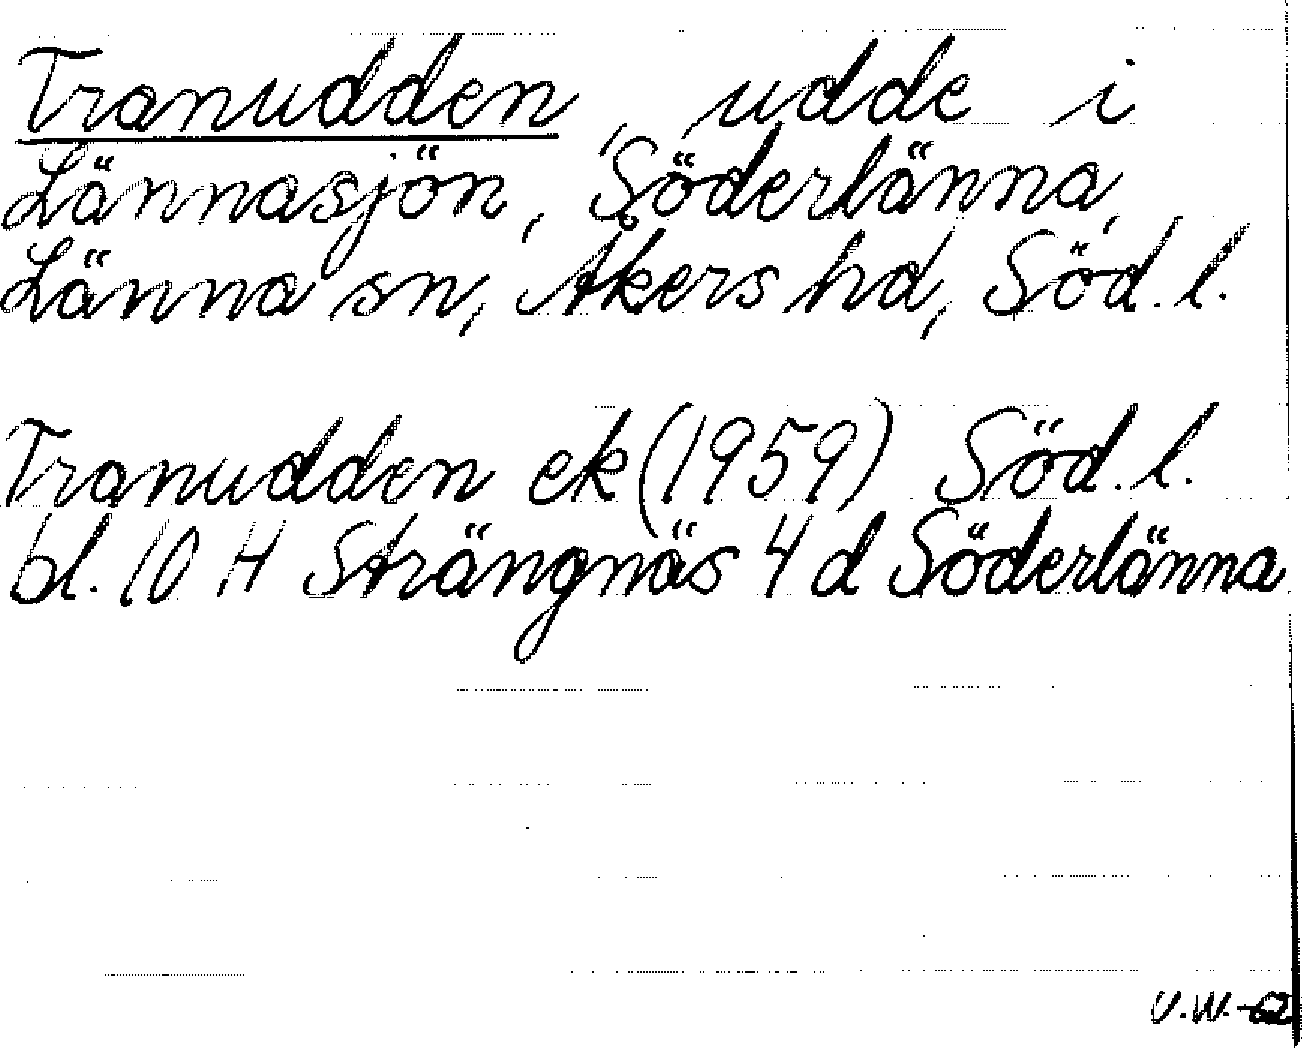 Tranudden, udde i
Lännasjön, Söderlänna,
Länna sn, Åkers hd, Söd. l.
Tranudden ek (1959) Söd. l.
bl. 10 H Strängnäs 4 d Söderlänna
U.W.-62